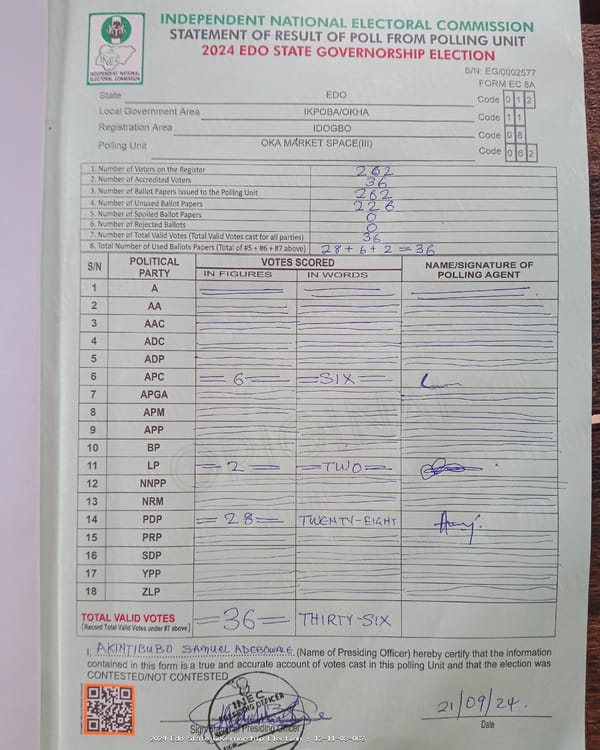 INDEPENDENT NATIONAL ELECTORAL COMMISSION
STATEMENT OF RESULT OF POLL FROM POLLING UNIT
2024 EDO STATE GOVERNORSHIP ELECTION
INEC
INDEPENDENT NATIONAL
ELECTORAL COMMISSION
S/N: EG/0002577
FORM EC 8A
State EDO Code 0 1 2
Local Government Area IKPOBA/OKHA Code 1 1
Registration Area IDOGBO Code 0 8
Polling Unit OKA MARKET SPACE(III) Code 0 6 2
1. Number of Voters on the Register 262
2. Number of Accredited Voters 36
3. Number of Ballot Papers Issued to the Polling Unit 262
4. Number of Unused Ballot Papers 226
5. Number of Spoiled Ballot Papers 0
6. Number of Rejected Ballots 0
7. Number of Total Valid Votes (Total Valid Votes cast for all parties) 36
8. Total Number of Used Ballots Papers (Total of #5 + #6 + #7 above) 28+6+2=36
S/N POLITICAL PARTY VOTES SCORED NAME/SIGNATURE OF POLLING AGENT
IN FIGURES IN WORDS
1 A
2 AA
3 AAC
4 ADC
5 ADP
6 APC =6= =SIX=
7 APGA
8 APM
9 APP
10 BP
11 LP =2= =TWO=
12 NNPP
13 NRM
14 PDP =28= TWENTY-EIGHT
15 PRP
16 SDP
17 YPP
18 ZLP
TOTAL VALID VOTES =36= THIRTY-SIX
(Record Total Valid Votes under #7 above)
I, AKINTIBUBO SAMUEL ADEBOWALE (Name of Presiding Officer) hereby certify that the information
contained in this form is a true and accurate account of votes cast in this polling Unit and that the election was
CONTESTED/NOT CONTESTED
INEC
PRESIDING OFFICER
21/09/24.
Signature of Presiding Officer Date
2024 Edo State Governorship Election : 12-11-08-062